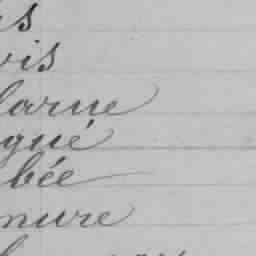 is
vis
larue
gué
bée
nure